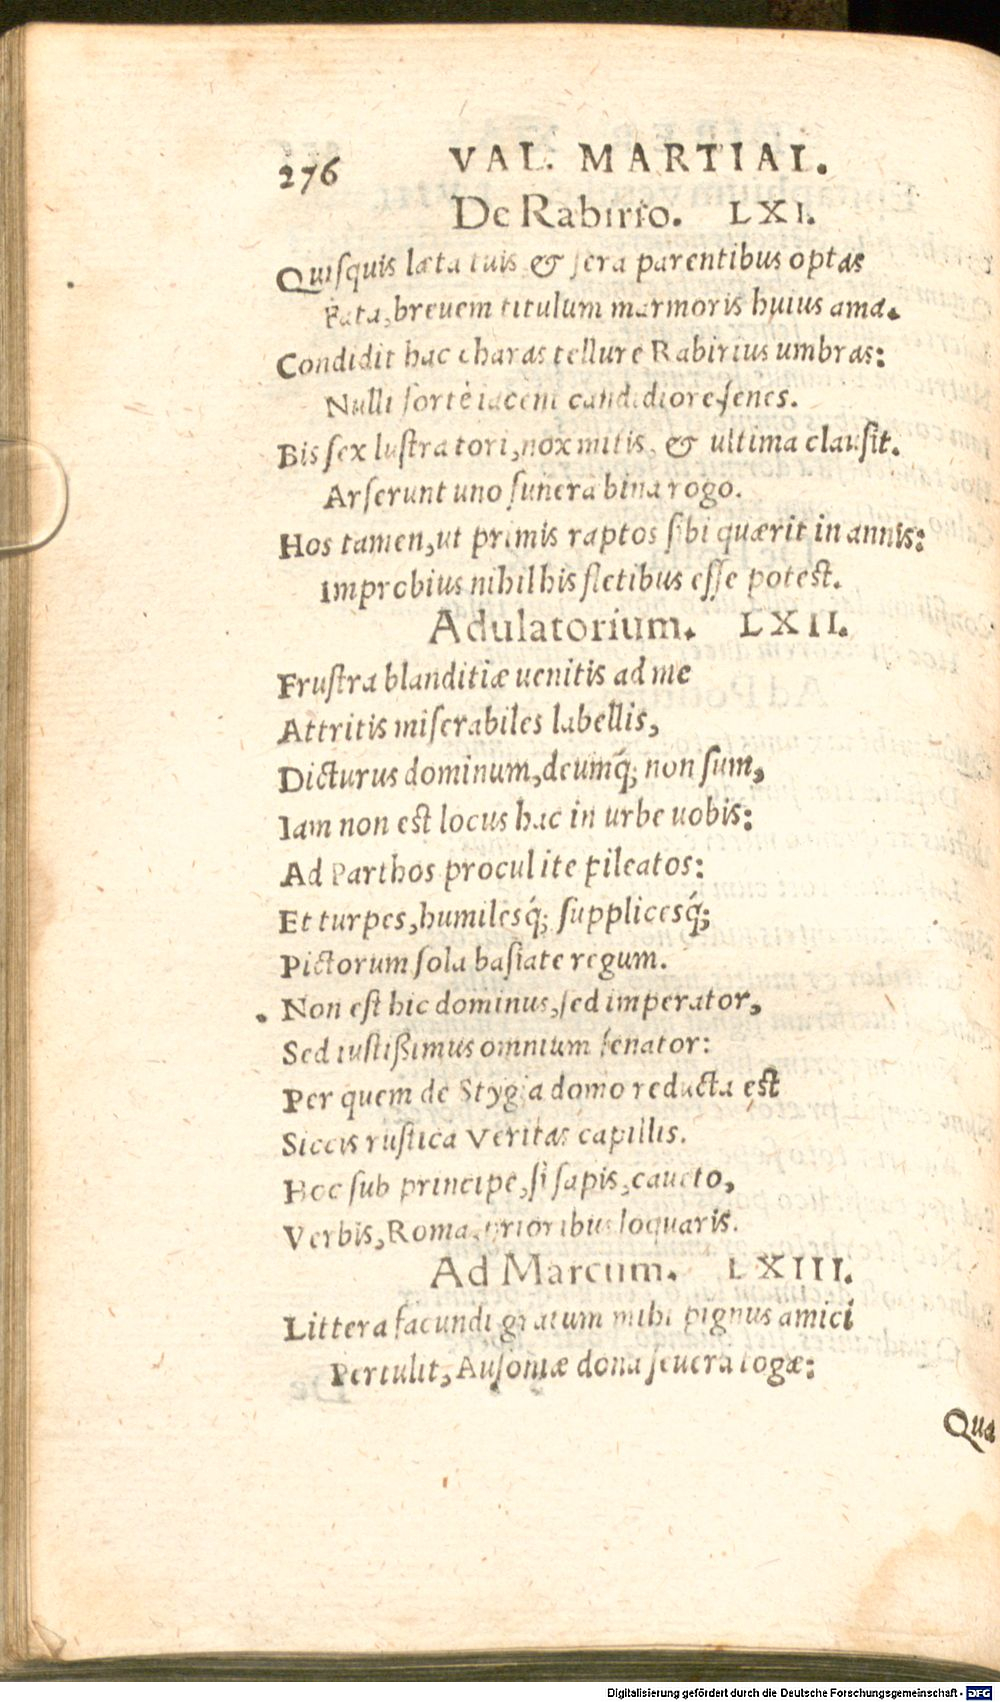 276 VAL. MARTIAL.
De Rabirio. LXI.
Quiſquis læta tuis & ſera parentibus optas
Fata, breuem titulum marmoris huius ama.
Condidit hac charas tellure Rabirius umbras:
Nulli ſorte iacent candidiore ſenes.
Bis ſex luſtra tori, nox mitis, & ultima clauſit.
Arſerunt uno funera bina rogo.
Hos tamen, ut primis raptos ſibi quærit in annis:
Improbius nihil his fletibus eſſe poteſt.
Adulatorium. LXII.
Fruſtra blanditiæ uenitis ad me
Attritis miſerabiles labellis,
Dicturus dominum, deumq́; non ſum,
Iam non eſt locus hac in urbe uobis:
Ad Parthos procul ite pileatos:
Et turpes, humilesq́; ſupplicesq́;
Pictorum ſola baſiate regum.
Non eſt hic dominus, ſed imperator,
Sed iuſtißimus omnium ſenator:
Per quem de Stygia domo reducta eſt
Siccis ruſtica Veritas capillis.
Hoc ſub principe, ſi ſapis, caueto,
Verbis, Roma, prioribus loquaris.
Ad Marcum. LXIII.
Littera facundi gratum mihi pignus amici
Pertulit, Auſoniæ dona ſeuera togæ:
Qua
Digitalisierung gefördert durch die Deutsche Forschungsgemeinschaft - DFG